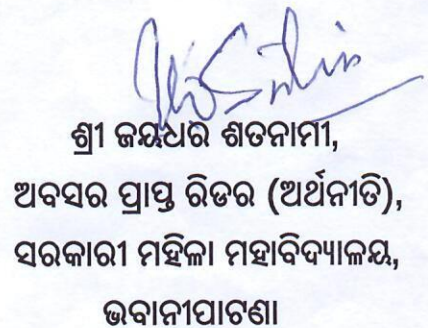 ଶ୍ରୀ ଜୟଧର ଶତନାମୀ,
ଅବସର ପ୍ରାପ୍ତ ରିଡର (ଅର୍ଥନୀତି),
ସରକାରୀ ମହିଳା ମହାବିଦ୍ୟାଳୟ,
ଭବାନୀପାଟଣା